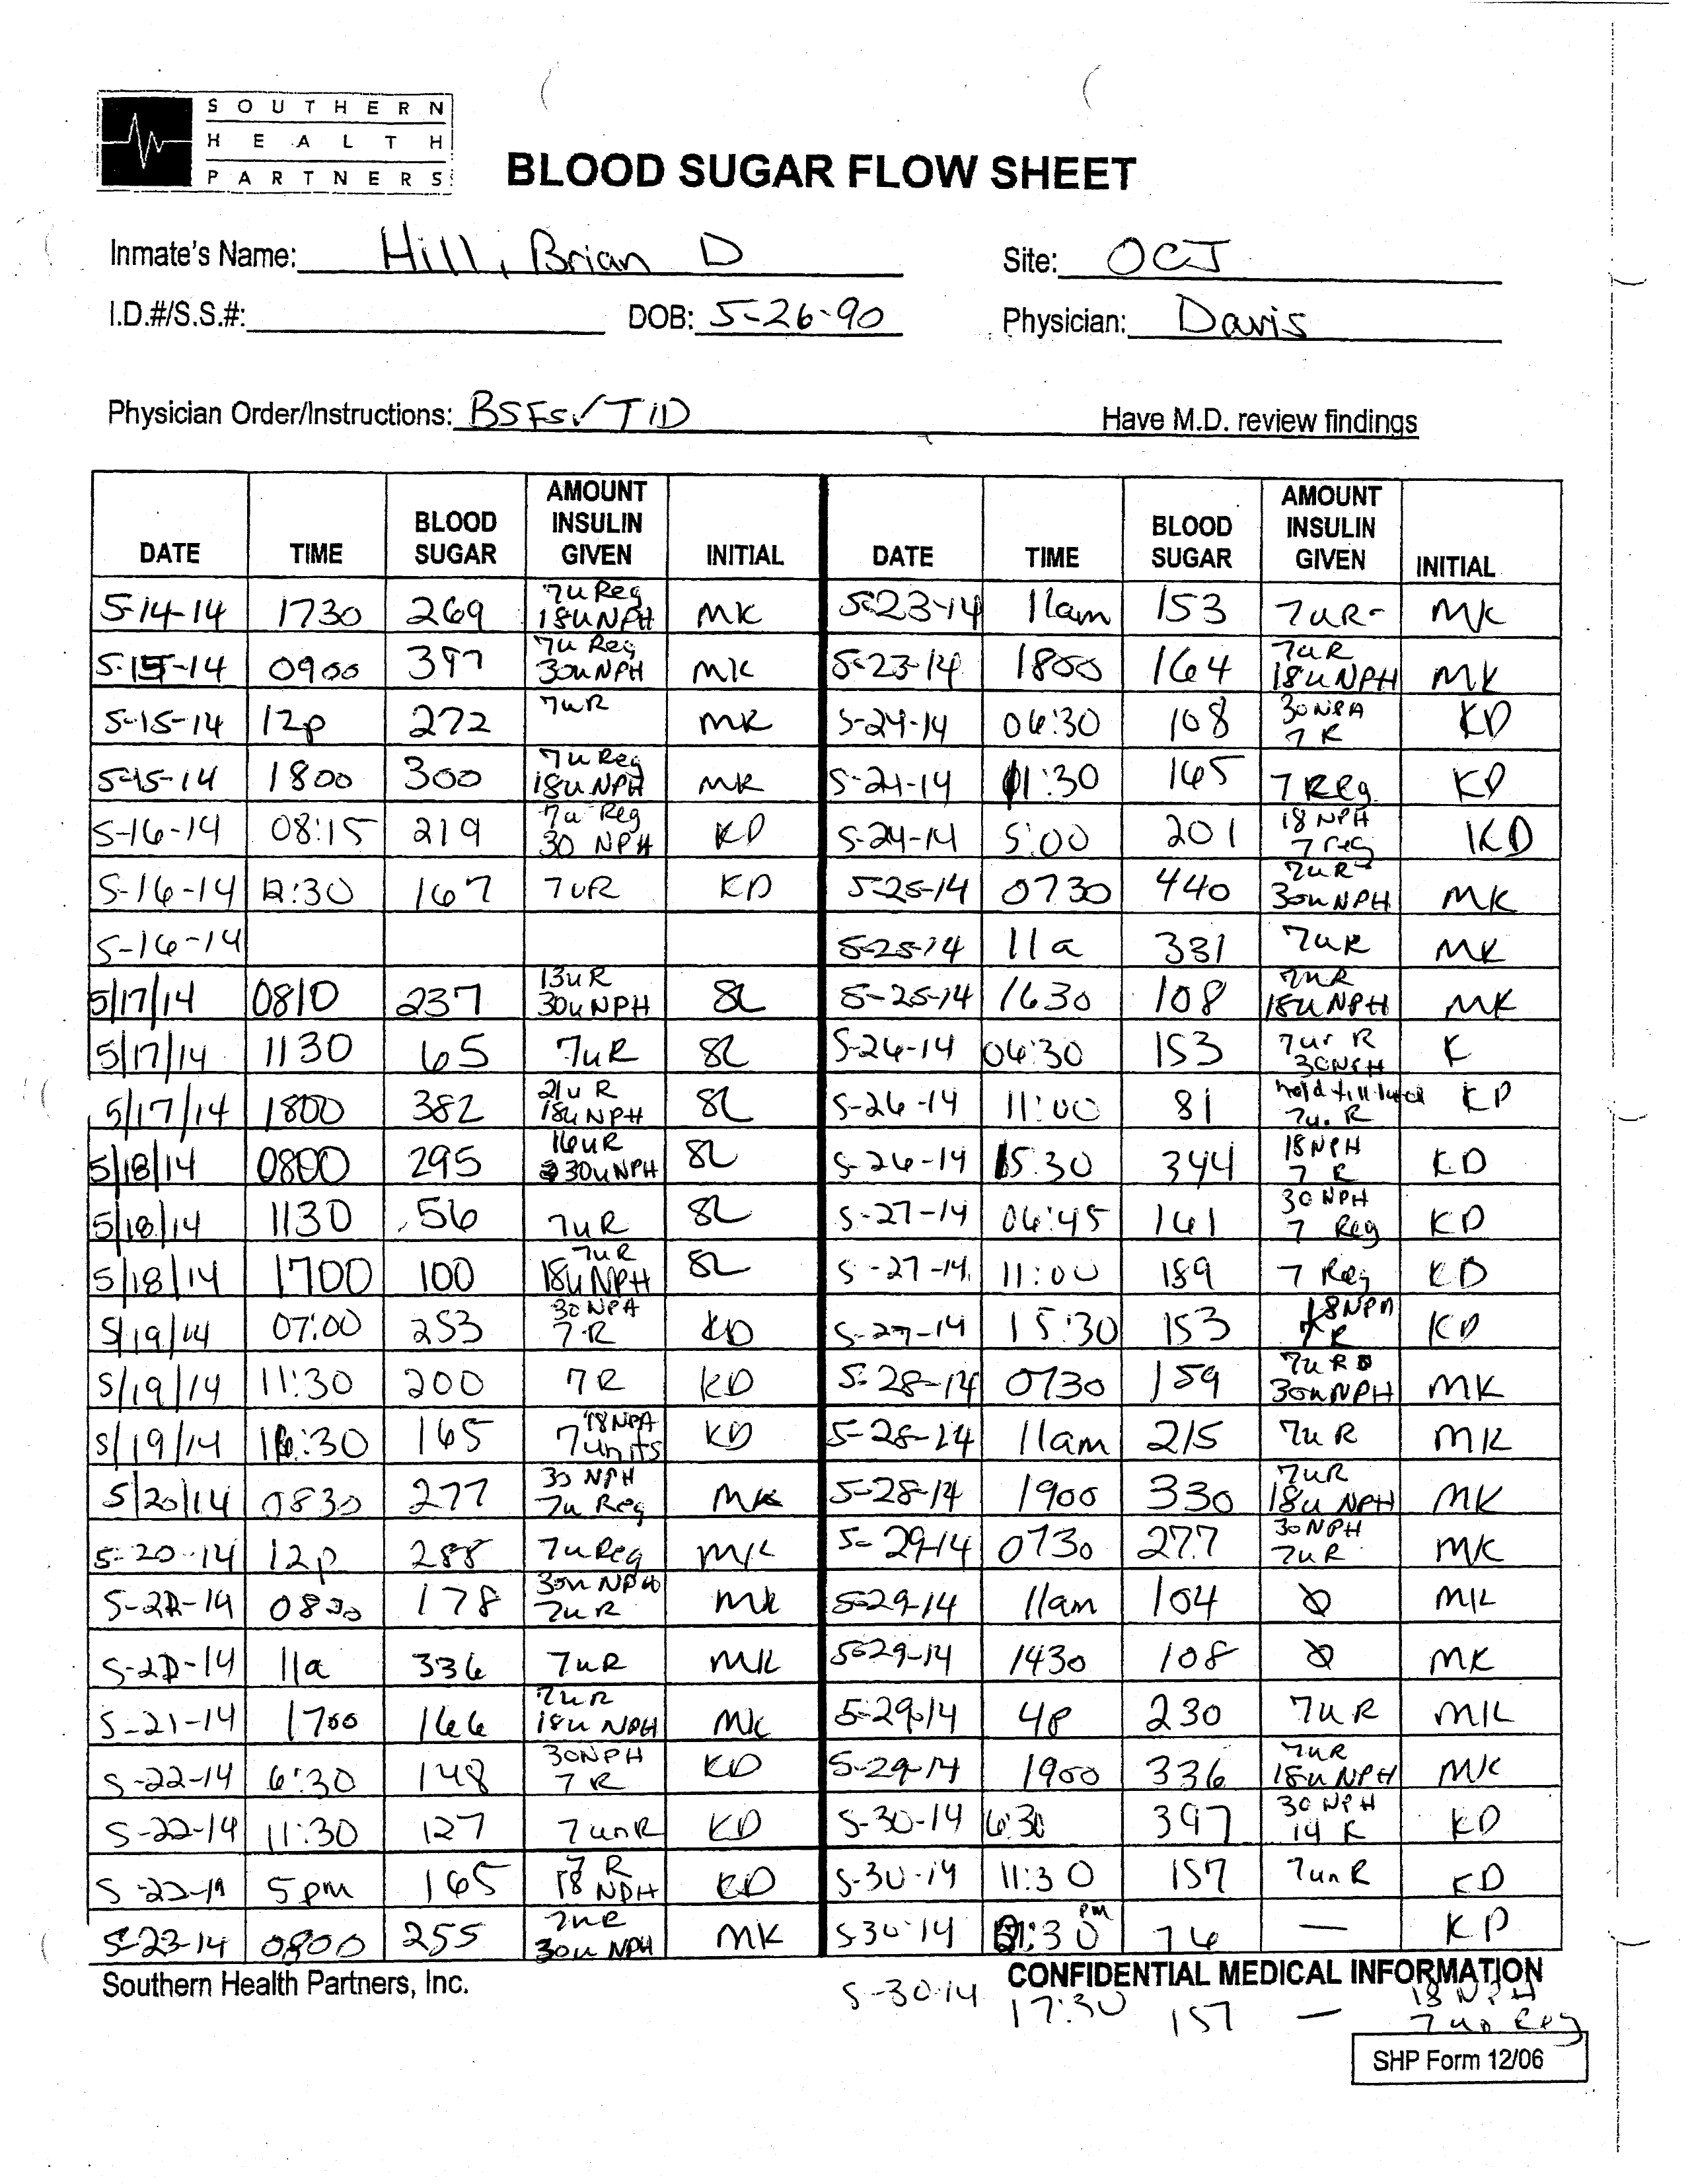 SOUTHERN
HEALTH
PARTNERS
BLOOD SUGAR FLOW SHEET
Inmate's Name: Hill, Brian D Site: OCJ
I.D.#/S.S.#: DOB: 5-26-90 Physician: Davis
Physician Order/Instructions: BSFS✓TID Have M.D. review findings
DATE TIME BLOOD SUGAR AMOUNT INSULIN GIVEN INITIAL DATE TIME BLOOD SUGAR AMOUNT INSULIN GIVEN INITIAL
5-14-14 1730 269 7u Reg 18u NPH MK 5-23-14 11am 153 7uR MK
5-15-14 0900 397 7u Reg 30u NPH MK 5-23-14 1800 164 7uR 18u NPH MK
5-15-14 12p 272 7uR MK 5-24-14 06:30 108 30 NPH 7 R KD
5-15-14 1800 300 7u Reg 18u NPH MK 5-24-14 11:30 165 7 Reg KD
5-16-14 08:15 219 7u Reg 30 NPH KD 5-24-14 5:00 201 18 NPH 7 reg KD
5-16-14 12:30 167 7uR KD 5-25-14 0730 440 7uR 30u NPH MK
5-16-14 5-25-14 11a 331 7uR MK
5/17/14 0810 237 13uR 30u NPH SL 5-25-14 1630 108 7uR 18u NPH MK
5/17/14 1130 65 7uR SL 5-26-14 06:30 153 7un R 30NPH K
5/17/14 1800 382 21u R 18u NPH SL 5-26-14 11:00 81 hold till lunch 7u. R KD
5/18/14 0800 295 16uR 30u NPH SL 5-26-14 15:30 344 18 NPH 7 R KD
5/18/14 1130 56 7uR SL 5-27-14 06:45 161 30 NPH 7 Reg KD
5/18/14 1700 100 7uR 18u NPH SL 5-27-14 11:00 189 7 Reg KD
5/19/14 07:00 253 30 NPH 7-R KD 5-27-14 15:30 153 18 NPH 7 R KD
5/19/14 11:30 200 7R KD 5-28-14 0730 159 7u R 30u NPH MK
5/19/14 16:30 165 18 NPH 7 units KD 5-28-14 11am 215 7u R MK
5/20/14 0830 277 30 NPH 7u Reg MK 5-28-14 1900 330 7uR 18u NPH MK
5-20-14 12p 288 7u Reg MK 5-29-14 0730 277 30 NPH 7uR MK
0830 178 30u NPH 7uR MK 5-29-14 11am 104 Ø MK
11a 336 7uR MK 5-29-14 1430 108 Ø MK
5-21-14 1700 166 7uR 18u NPH MK 5-29-14 4p 230 7u R MK
5-22-14 6:30 148 30NPH 7 R KD 5-29-14 1900 336 7uR 18u NPH MK
5-22-14 11:30 127 7unR KD 5-30-14 6:30 397 30 NPH 14 R KD
5-22-14 5pm 165 7 R 18 NPH KD 5-30-14 11:30 157 7un R KD
5-23-14 0800 255 7uR 30u NPH MK 5-30-14 :30 pm 76 — KD
Southern Health Partners, Inc. CONFIDENTIAL MEDICAL INFORMATION
5-30-14 17:30 157 — 18 NPH 7 un Reg
SHP Form 12/06